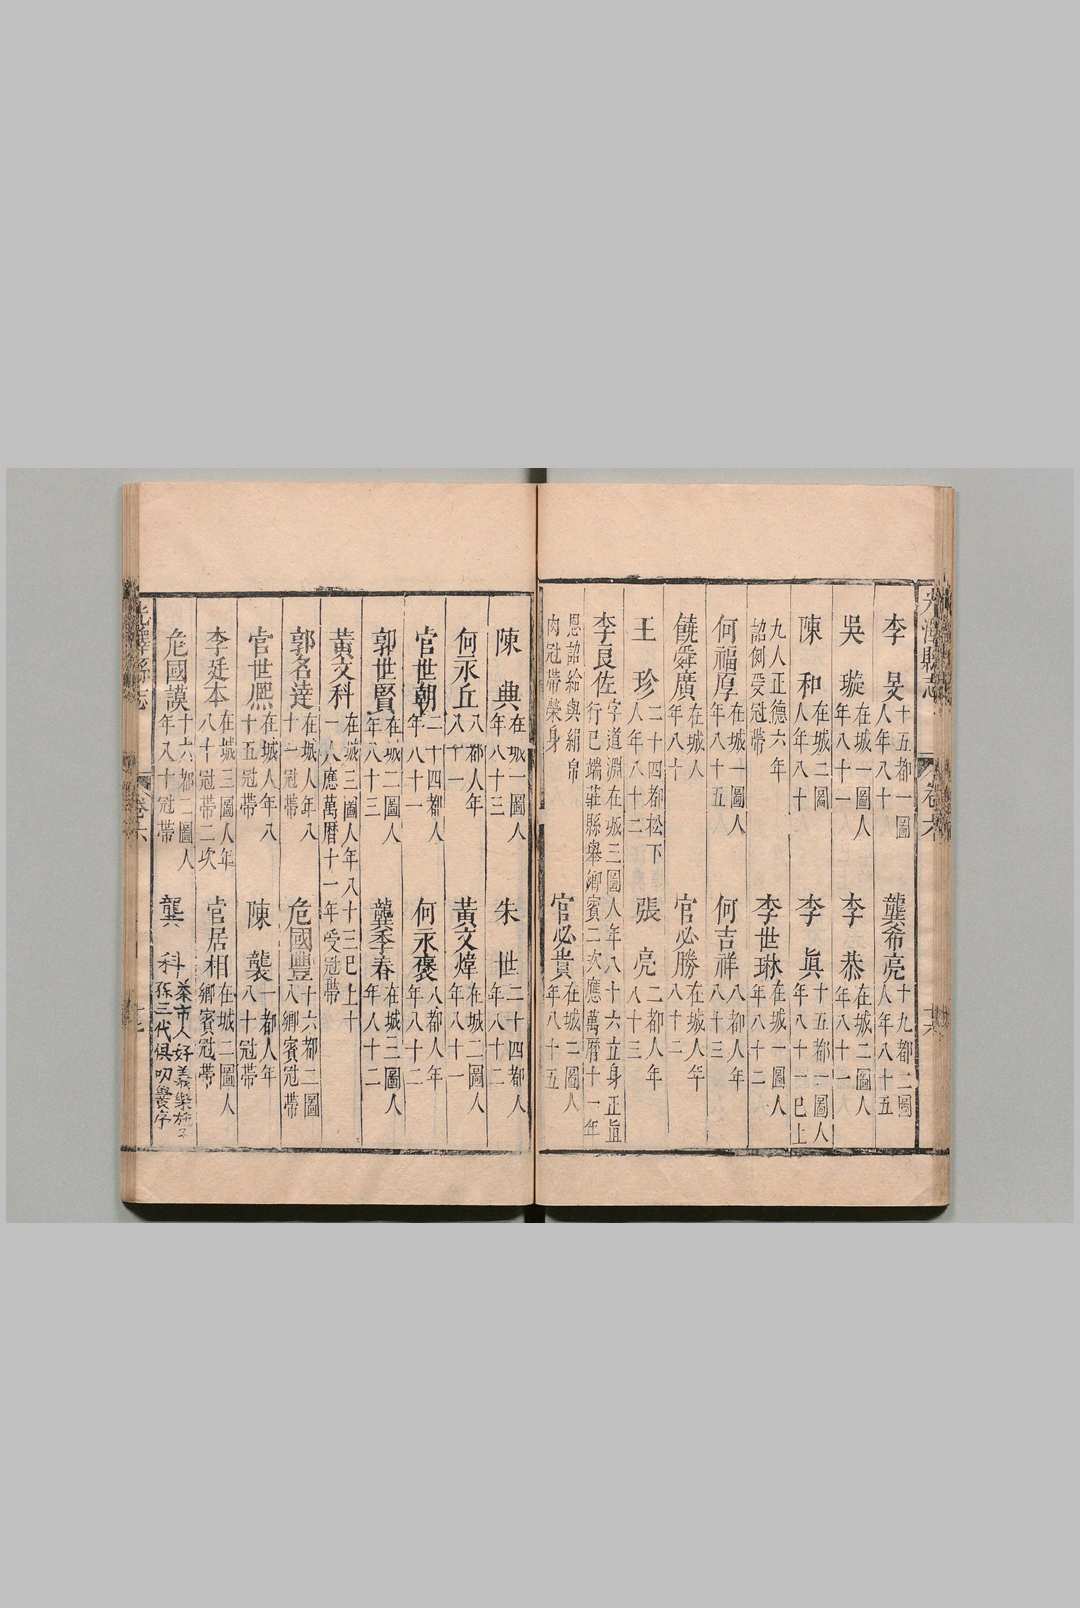 光澤縣志
卷六
十六
李旻 十五都一圖人年八十
龔希亮 十九都二圖人年八十五
吳璇 在城一圖人年八十一
李恭 在城二圖人年八十一
陳和 在城二圖人年八十
李眞 十五都一圖人年八十一已上
九人正德六年
詔例受冠帶
李世琳 在城一圖人年八十二
何福厚 在城一圖人年八十五
何吉祥 八都人年八十三
饒舜廣 在城人年八十
官必勝 在城人年八十二
王珍 二十四都松下人年八十二
張亮 二都人年八十三
李良佐 字道淵在城三圖人年八十六立身正直行已端莊縣舉鄉賓二次應萬曆十一年
恩詔給與絹帛
肉冠帶榮身
官必貴 在城二圖人年八十五
陳典 在城一圖人年八十三
朱世 二十四都人年八十二
何永丘 八都人年八十一
黃文煒 在城二圖人年八十一
官世朝 二十四都人年八十一
何永褒 八都人年八十二
郭世賢 在城二圖人年八十三
龔季春 在城三圖人年八十二
黃文科 在城三圖人年八十三已上十一人應萬曆十一年受冠帶
郭名達 在城人年八十一冠帶
危國豐 十六都二圖人鄉賓冠帶
官世熈 在城人年八十五冠帶
陳襲 一都人年八十冠帶
李廷本 在城三圖人年八十冠帶二次
官居相 在城二圖人鄉賓冠帶
危國謨 十六都二圖人年八十冠帶
龔科 市人好義樂施三代俱叨
光澤縣志
卷六
十七